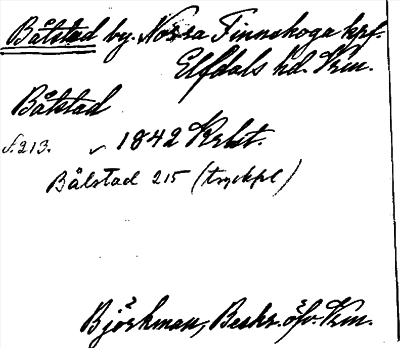 Bålstad by. Norra Finnskoga kpf.
Elfdals hd. Vrm.
Bålstad
s. 213. ✓ 1842 Krbt.
Bålstad 215 (tryckpl)
Björkman, Beskr. öfv. Vrm.